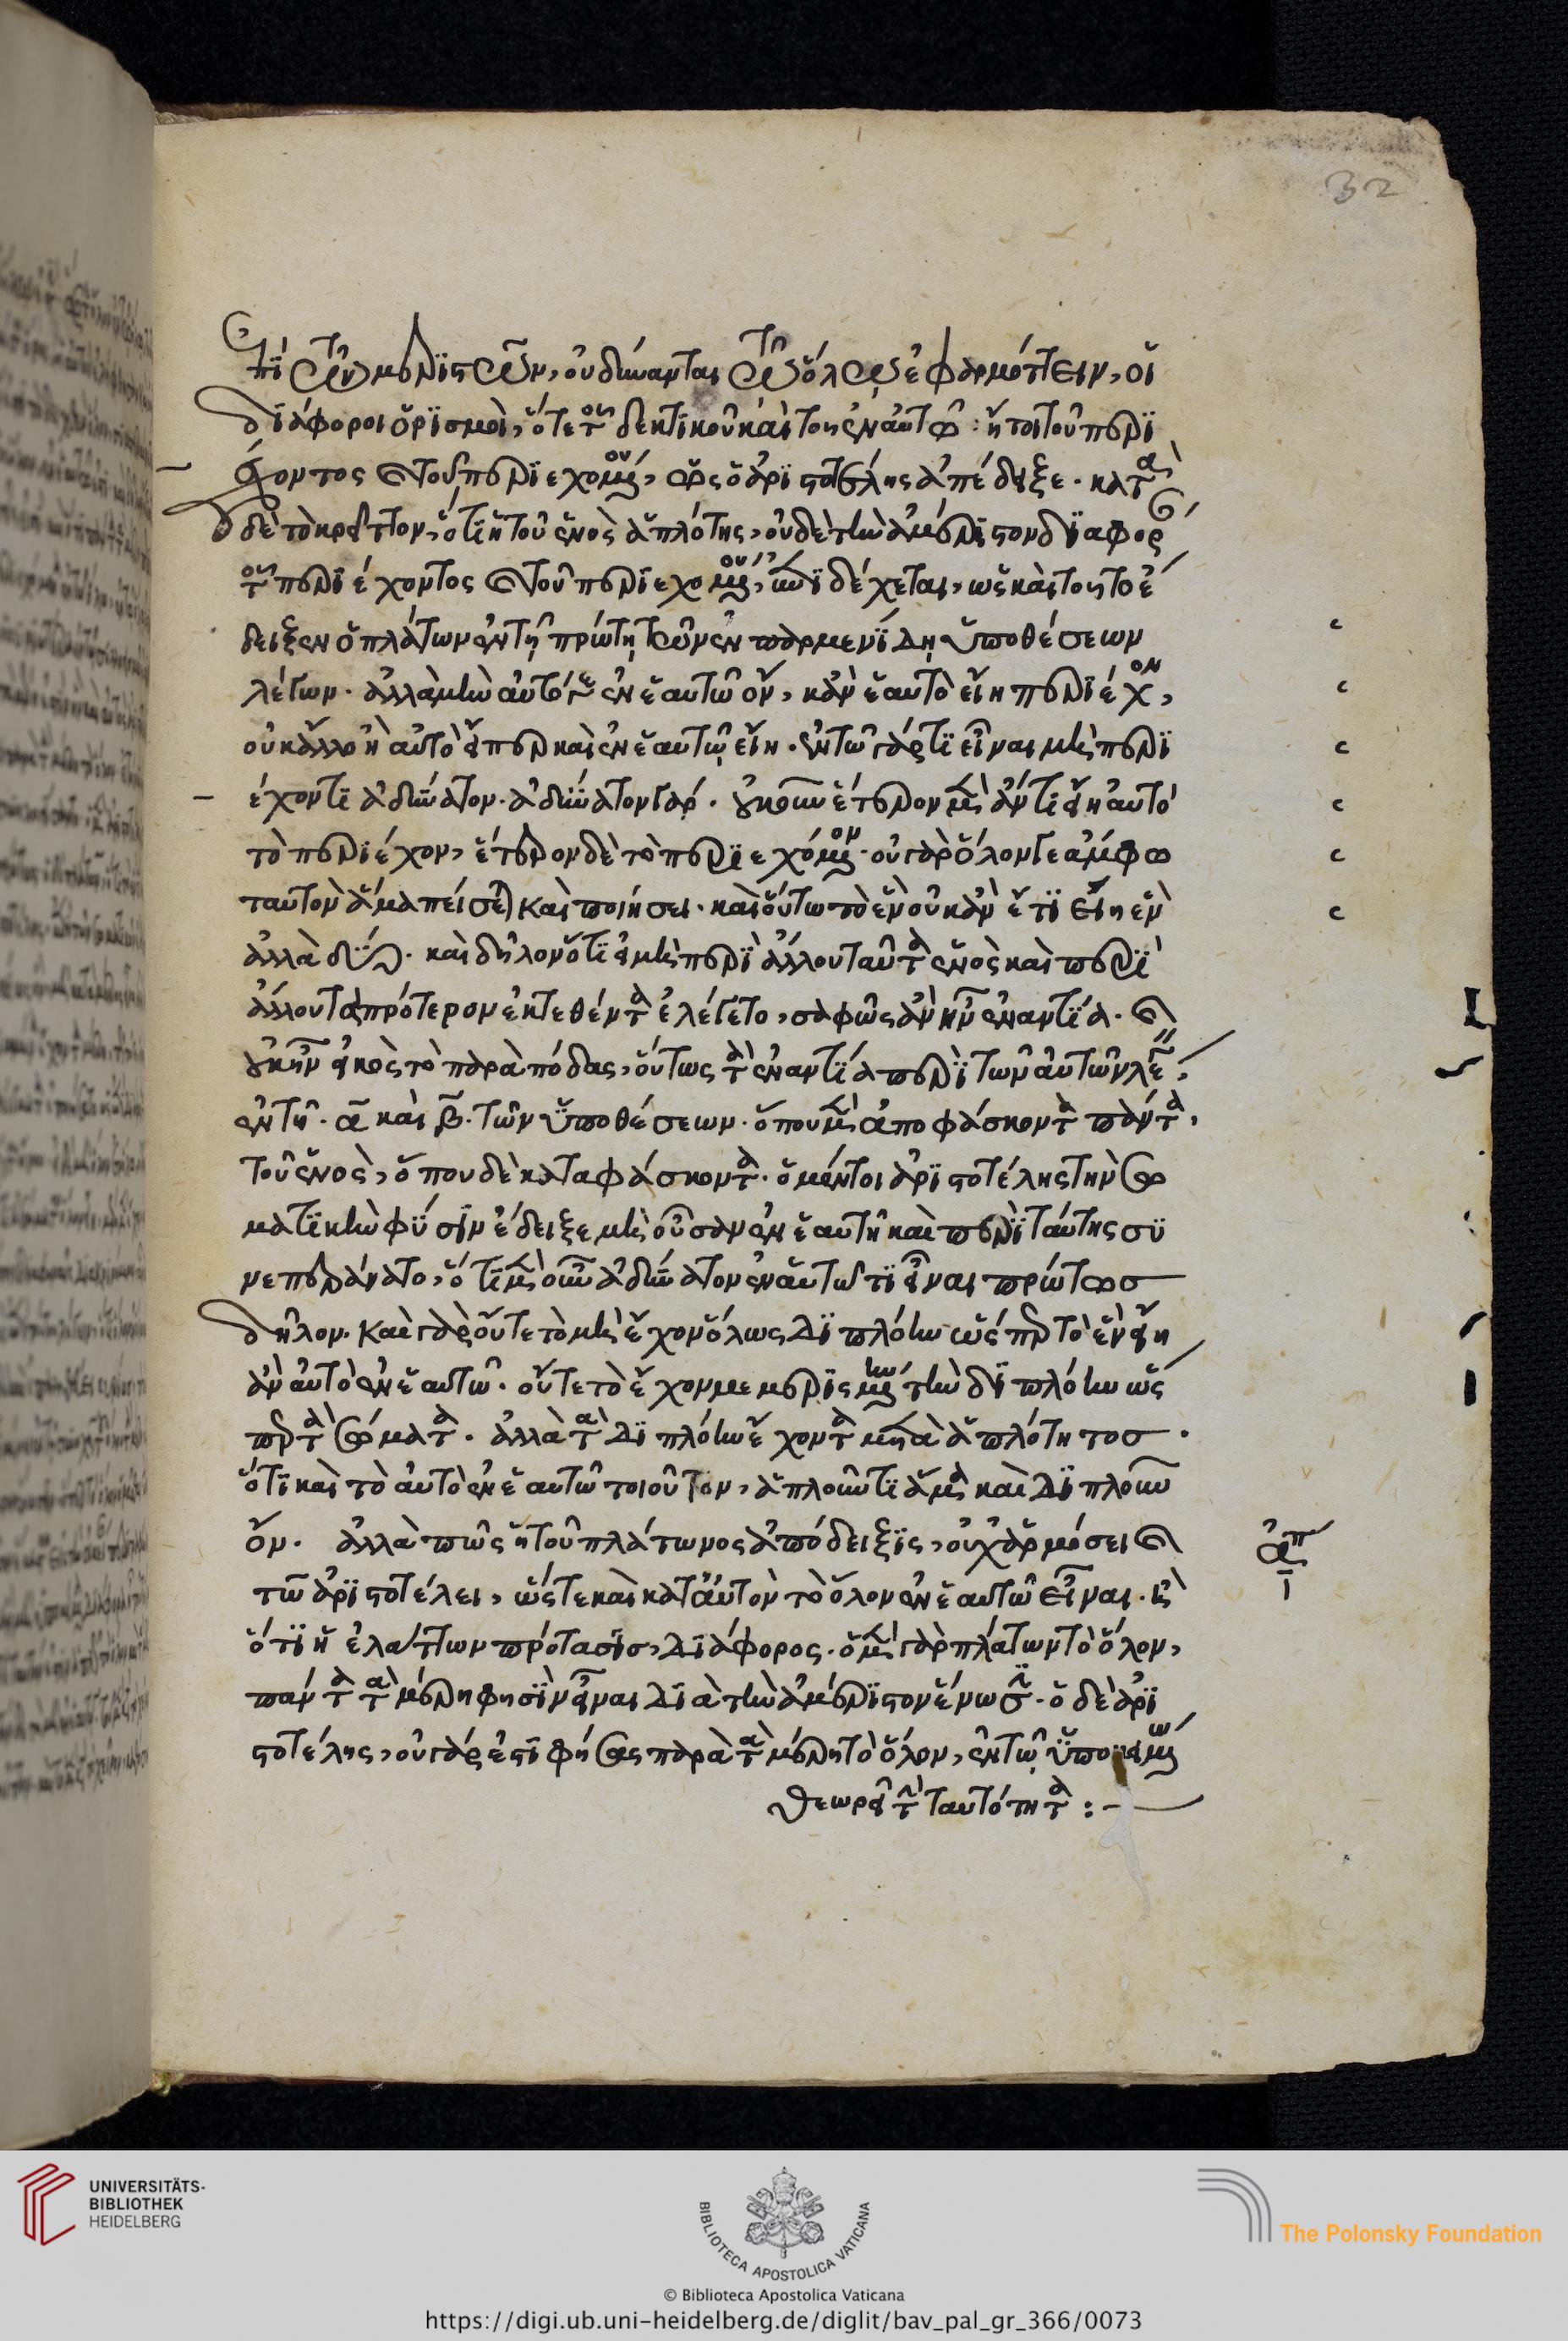 32
διάφοροι ὁρϊσμοὶ, ὅτε τοῦ δεκτϊκοῦ καὶ τοῦ ἐν αὐτῶ : ἤτοι τοῦ περϊ
έχοντος καὶ τοῦ περϊεχομένου, ὡς ὁ ἀρϊστοτέλης ἀπέδειξε. κατὰ
δὲ τὸ κρεῖττον, ὅτϊ ἡ τοῦ ἑνὸς ἁπλότης, οὐδὲ τὴν ἀμέρϊστον δϊαφορ
τοῦ περϊέχοντος καὶ τοῦ περϊεχομένου, δέχεται, ὡς καὶ τοῦτο ἔ
δειξεν ὁ πλάτων ἐν τῆ πρώτη τῶν ἐν παρμενίδη ὑποθέσεων
λέγων. ἀλλὰ μὴν αὐτό γε ἐν ἑαυτῶ ὂν, κἂν ἑαυτὸ εἴη περϊέχον,
οὐκ ἄλλο ἢ αὐτὸ εἴπερ καὶ ἐν ἑαυτῶ εἴη. ἔν τω γάρ τϊ εἶναι μὴ περϊ
έχοντϊ ἀδύνατον. ἀδύνατον γάρ. οὐκοῦν ἕτερον μὲν ἄν τϊ εἴη αὐτὸ
τὸ περϊέχον, ἕτερον δὲ τὸ περϊεχόμενον. οὐ γὰρ ὅλον γε ἄμφω
ταυτὸν ἅμα πείσεται καὶ ποιήσει. καὶ οὕτω τὸ ἓν οὐκ ἂν ἔτϊ εἴη ἓν
ἀλλὰ δύο. καὶ δῆλον ὅτϊ εἰ μὴ περϊ ἄλλου ταῦτα ἑνὸς καὶ περϊ
ἄλλου τὰ πρότερον ἐκτεθέντα ἐλέγετο, σαφῶς ἂν ἦν ἐναντία. καὶ
οὐκ ἦν εἰκὸς τὸ παρὰ πόδας, οὕτως τὰ ἐναντία περὶ τῶν αὐτῶν λέγ
ἐν τῆ. α καὶ β. τῶν ὑποθέσεων. ὅπου μὲν ἀποφάσκοντα πάντα.
τοῦ ἑνὸς, ὅπου δὲ καταφάσκοντα. ὁ μέντοι ἀρϊστοτέλης τὴν σω
ματϊκὴν φύσϊν ἔδειξε μὴ οὖσαν ἐν ἑαυτῆ καὶ περὶ ταύτης συ
νεπεράνατο, ὅτϊ μὲν οὖν ἀδύνατον ἐν αὑτῶ τϊ εἶναι πρώτως
δῆλον. καὶ γὰρ οὔτε τὸ μὴ ἔχον ὅλως δϊπλόην ὥσπερ τὸ ἓν εἴη
ἂν αὐτὸ ἐν ἑαυτῶ. οὔτε τὸ ἔχον μεμερϊσμένην τὴν δϊπλόην ὥσ
περ τὰ σώματα. ἀλλὰ τὰ δϊπλόην ἔχοντα μετὰ ἁπλότητος.
ὅτϊ καὶ τὸ αὐτὸ ἐν ἑαυτῶ τοιοῦτον, ἁπλοῦν τϊ ἅμα καὶ δϊπλοῦν
ὄν. ἀλλὰ πῶς ἡ τοῦ πλάτωνος ἀπόδειξϊς, οὐχ ἁρμόσει καὶ
τῶ ἀρϊστοτέλει, ὥστε καὶ κατ' αὐτὸν τὸ ὅλον ἐν ἑαυτῶ εἶναι. ἢ
ὅτϊ ἡ ἐλάττων πρότασϊς, δϊάφορος. ὁ μὲν γὰρ πλάτων τὸ ὅλον,
πάντα τὰ μέρη φησϊν εἶναι δϊὰ τὴν ἀμέρϊστον ἕνωσϊν. ὁ δὲ ἀρϊ
στοτέλης, οὐ γάρ ἐστϊ φήσας παρὰ τὰ μέρη τὸ ὅλον, ἐν τῶ ὑποκειμένω
θεωρεῖ τὴν ταυτότητα :-
UNIVERSITÄTS-
BIBLIOTHEK
HEIDELBERG
BIBLIOTECA APOSTOLICA VATICANA
The Polonsky Foundation
© Biblioteca Apostolica Vaticana
https://digi.ub.uni-heidelberg.de/diglit/bav_pal_gr_366/0073